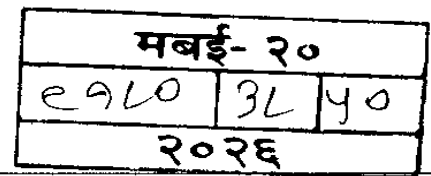 मबई- २०
९१८० ३८ ५०
२०२६